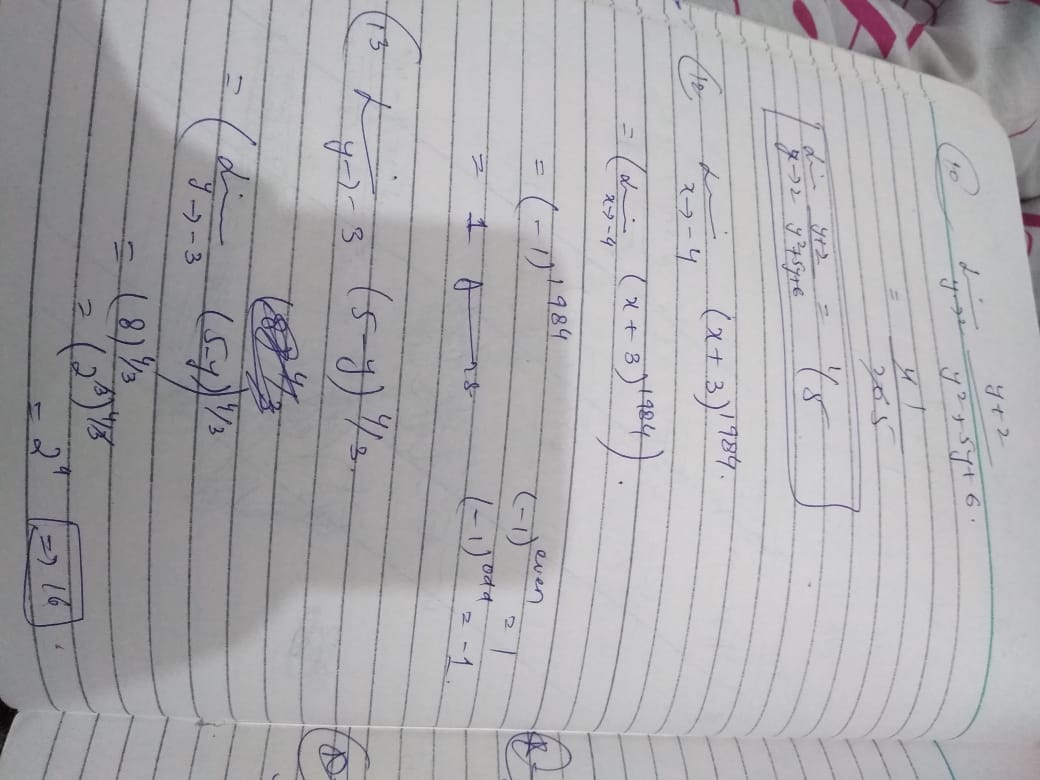 (10) lim y→2 y+2 / y²+5y+6.
= 4 1 / 20 5
lim y→2 y+2 / y²+5y+6 = 1/5
(12) lim x→-4 (x+3)^1984.
= (lim x→-4 (x+3)^1984).
= (-1)^1984 (-1)^even = 1
= 1 (-1)^odd = -1.
(13 lim y→-3 (5-y)^4/3.
= (lim y→-3 (5-y))^4/3
= (8)^4/3
= (2^3)^4/3
= 2^4 => 16.